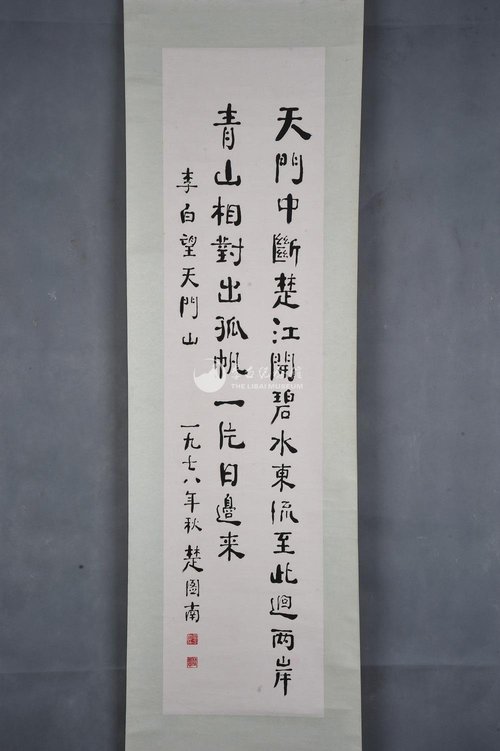 天門中斷楚江開碧水東流至此迴兩岸
青山相對出孤帆一片日邊來
李白望天門山
一九七八年秋 楚圖南
THE LIBAI MUSEUM